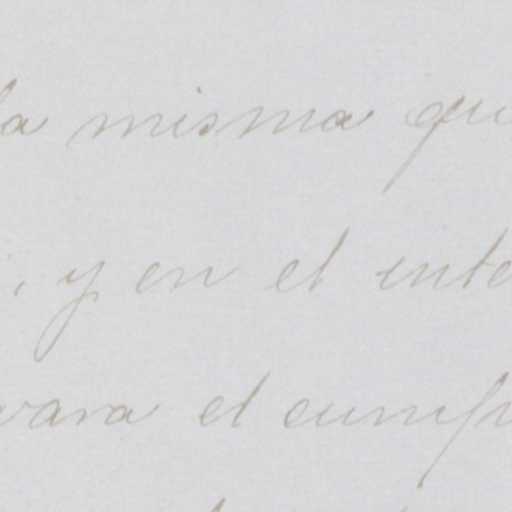 la misma que
, y en el inte
vara el cump